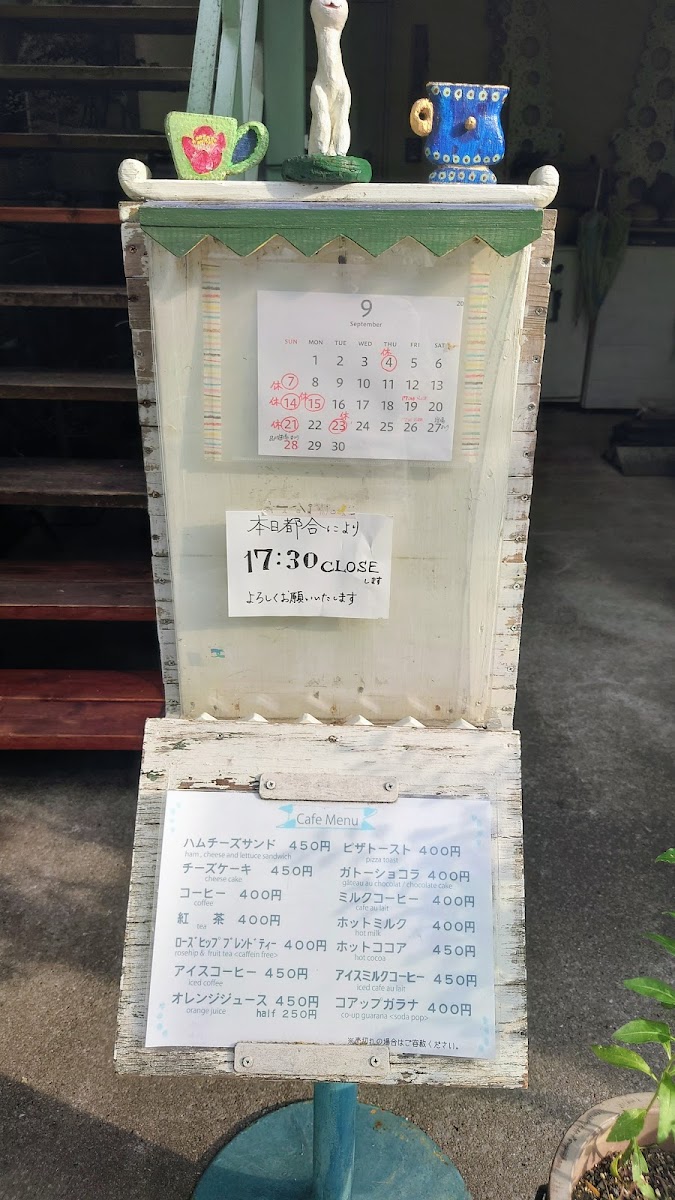 9
September
SUN MON TUE WED THU FRI SAT
休
1 2 3 4 5 6
休 7 8 9 10 11 12 13
休 14 休 15 16 17 18 19 20
休 21 22 休 23 24 25 26 27
28 29 30
本日都合により
17:30 CLOSE
します
よろしくお願いいたします
Cafe Menu
ハムチーズサンド 450円 ピザトースト 400円
ham, cheese and lettuce sandwich pizza toast
チーズケーキ 450円 ガトーショコラ 400円
cheese cake gateau au chocolat / chocolata cake
コーヒー 400円 ミルクコーヒー 400円
coffee cafe au lait
紅 茶 400円 ホットミルク 400円
tea hot milk
ローズヒップブレンドティー 400円 ホットココア 450円
rosehip & fruit tea <caffein free> hot cocoa
アイスコーヒー 450円 アイスミルクコーヒー 450円
iced coffee iced cafe au lait
オレンジジュース 450円 コアップガラナ 400円
orange juice half 250円 co-up guarana <soda pop>
※売切れの場合はご容赦ください。